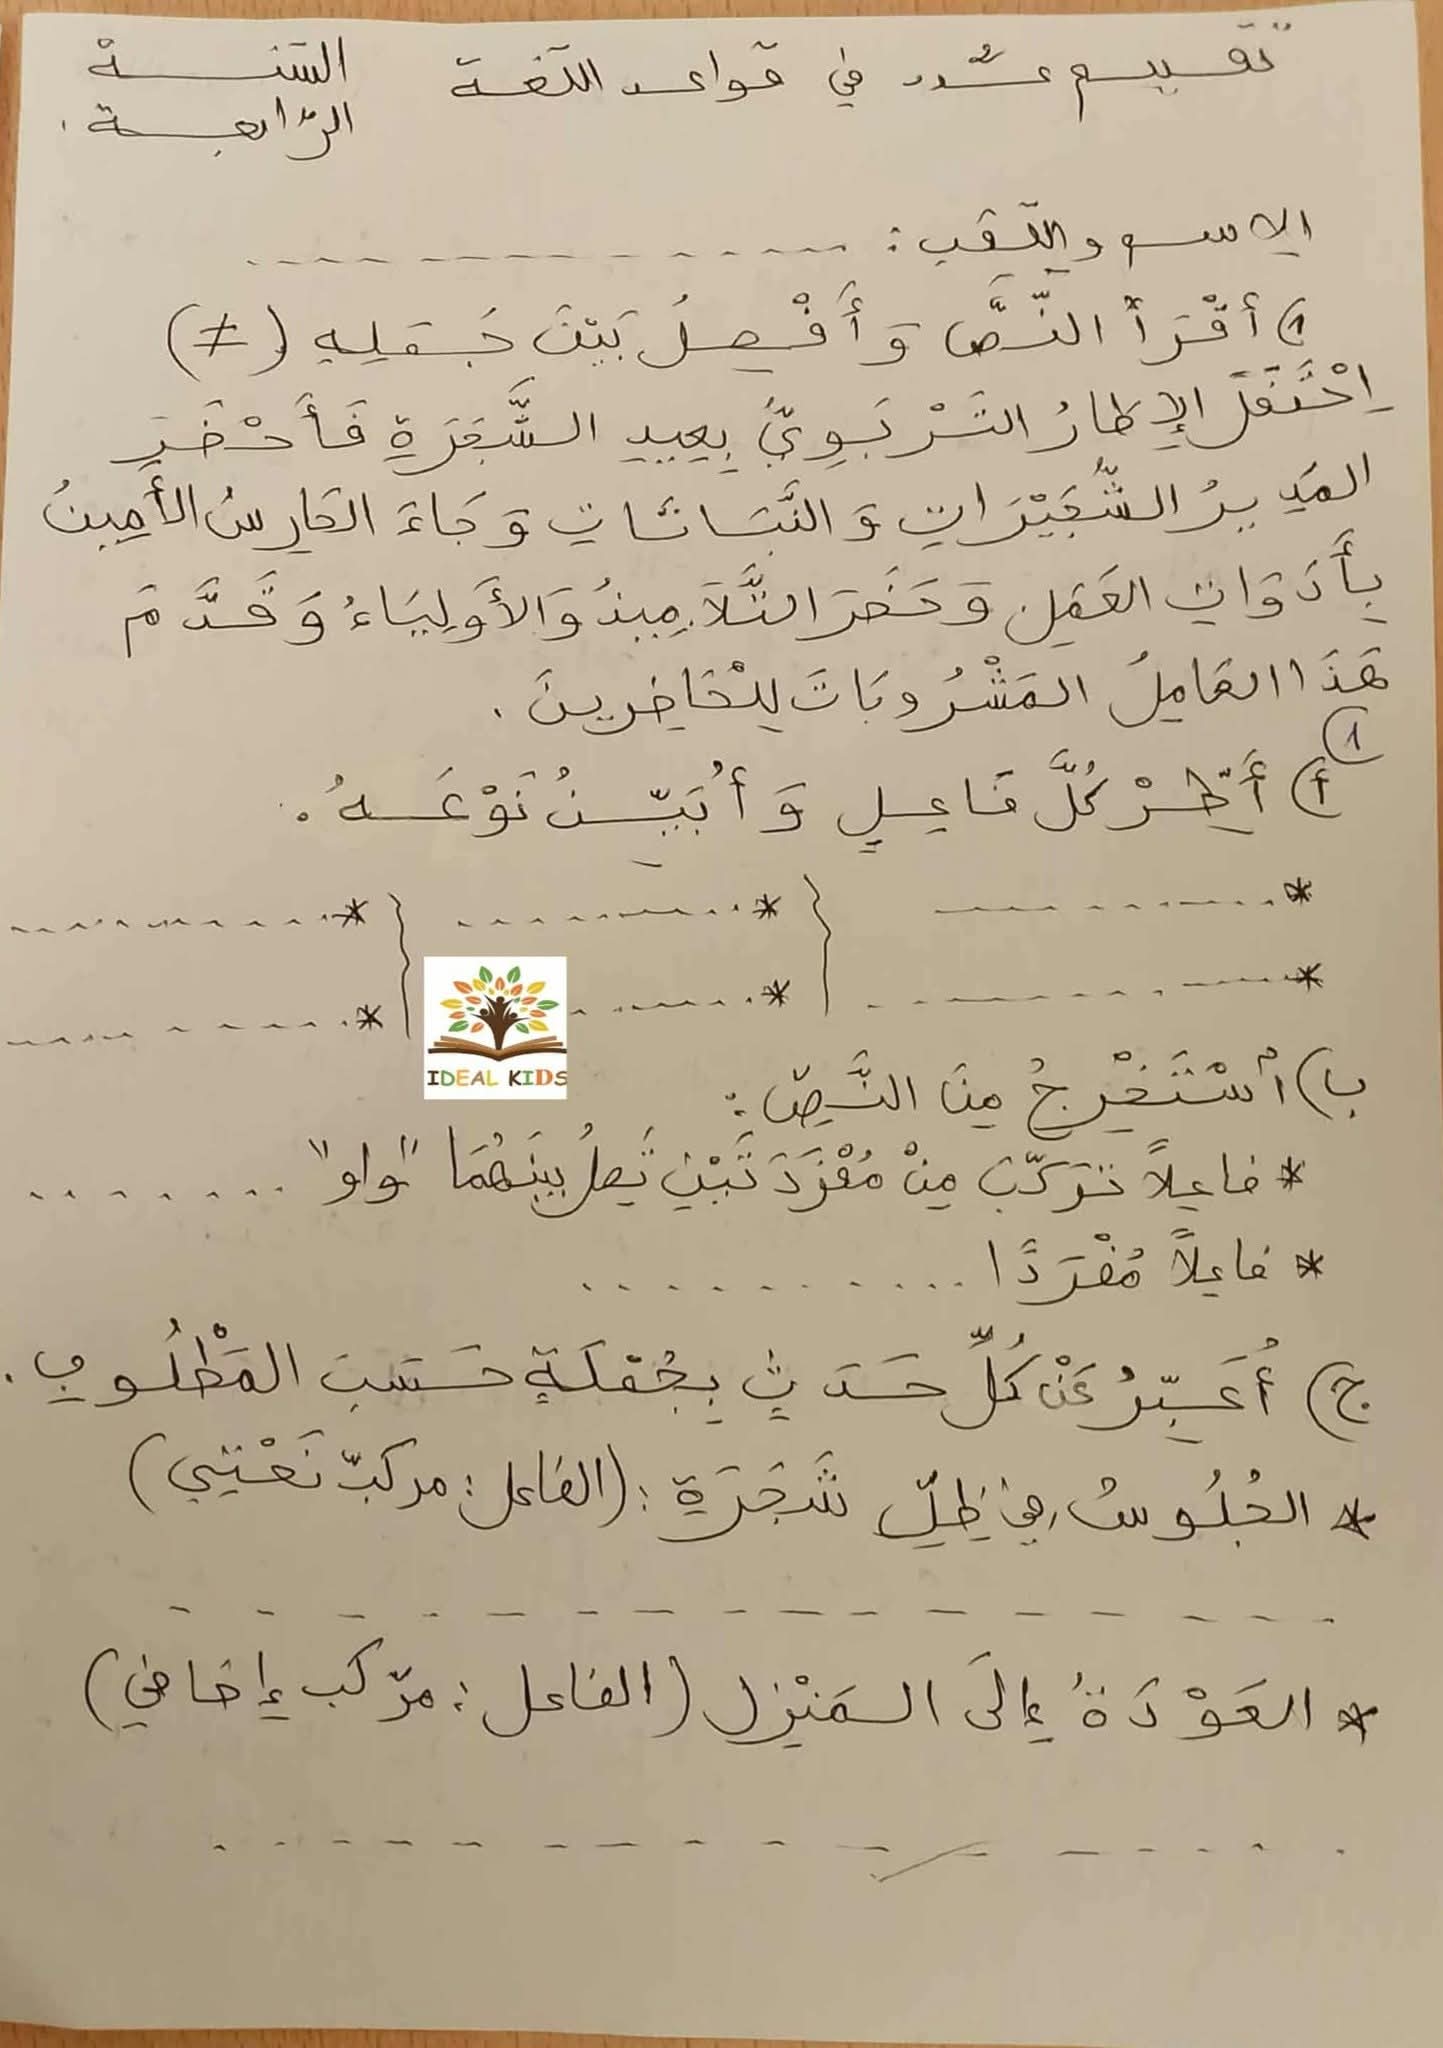 تقييم عدد في قواعد اللّغة السّنة
الرّابعة.
الاسم واللّقب: ............
1) أَقْرَأُ النَّصَّ وَ أَفْصِلُ بَيْنَ جُمَلِهِ (≠)
اِحْتَفَلَ الإِطَارُ التَّرْبَوِيُّ بِعِيدِ الشَّجَرَةِ فَأَحْضَرَ
المُدِيرُ الشُّجَيْرَاتِ وَ النَّبَاتَاتِ وَ جَاءَ الحَارِسُ الأَمِينُ
بِأَدَوَاتِ العَمَلِ وَ حَضَرَ التَّلاَمِيذُ وَ الأَوْلِيَاءُ وَ قَدَّمَ
هَذَا العَامِلُ المَشْرُوبَاتَ لِلْحَاضِرِينَ.
1
أ) أُأَطِّرُ كُلَّ فَاعِلٍ وَ أُبَيِّنُ نَوْعَهُ.
*............ *............ *............
*............ *............ *............
IDEAL KIDS
ب) أَسْتَخْرِجُ مِنَ النَّصِّ:
* فاعِلاً تركّبَ مِنْ مُفْرَدَتَيْنِ تَصِلُ بَيْنَهُمَا "واو" ........
* فاعِلاً مُفْرَدًا ............
ج) أُعَبِّرُ عَنْ كُلِّ حَدَثٍ بِجُمْلَةٍ حَسَبَ المَطْلُوبِ.
* الجُلُوسُ فِي ظِلِّ شَجَرَةٍ: (الفاعل: مركّب نَعْتِيّ)
............
* العَوْدَةُ إِلَى المَنْزِلِ (الفاعل: مركّب إضافي)
............